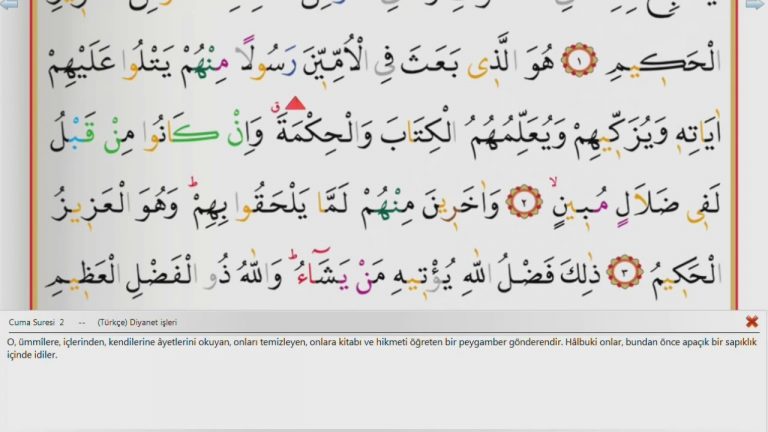 الْحَكِيمِ ﴿١﴾ هُوَ الَّذٖى بَعَثَ فِى الْاُمِّيّٖنَ رَسُولًا مِنْهُمْ يَتْلُوا عَلَيْهِمْ
اٰيَاتِهٖ وَيُزَكّٖيهِمْ وَيُعَلِّمُهُمُ الْكِتَابَ وَالْحِكْمَةَ ق وَاِنْ كَانُوا مِنْ قَبْلُ
لَفٖى ضَلَالٍ مُبٖينٍ ﴿٢﴾ وَاٰخَرٖينَ مِنْهُمْ لَمَّا يَلْحَقُوا بِهِمْ ط وَهُوَ الْعَزٖيزُ
الْحَكٖيمُ ﴿٣﴾ ذٰلِكَ فَضْلُ اللّٰهِ يُؤْتٖيهِ مَنْ يَشَٓاءُ ط وَاللّٰهُ ذُو الْفَضْلِ الْعَظٖيمِ
Cuma Suresi 2 -- (Türkçe) Diyanet işleri
O, ümmîlere, içlerinden, kendilerine âyetlerini okuyan, onları temizleyen, onlara kitabı ve hikmeti öğreten bir peygamber gönderendir. Hâlbuki onlar, bundan önce apaçık bir sapıklık
içinde idiler.